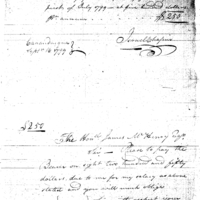 first of July 1799 at five hundred dollars
pr annum $250
Canandaigua
Septr 16 1799
Israel Chapin
$250
The Honble James McHenry Esqr
Sir Please to pay the
Bearer on sight two hundred and fifty
dollars due to me for my salary as above
stated and you will much oblige